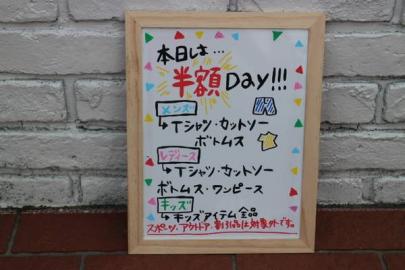 本日は…
半額Day!!!
メンズ
→Tシャツ・カットソー
ボトムス
レディース
→Tシャツ・カットソー
ボトムス・ワンピース
キッズ
→キッズアイテム全品
スポーツ、アウトドア、割引品は対象外です。